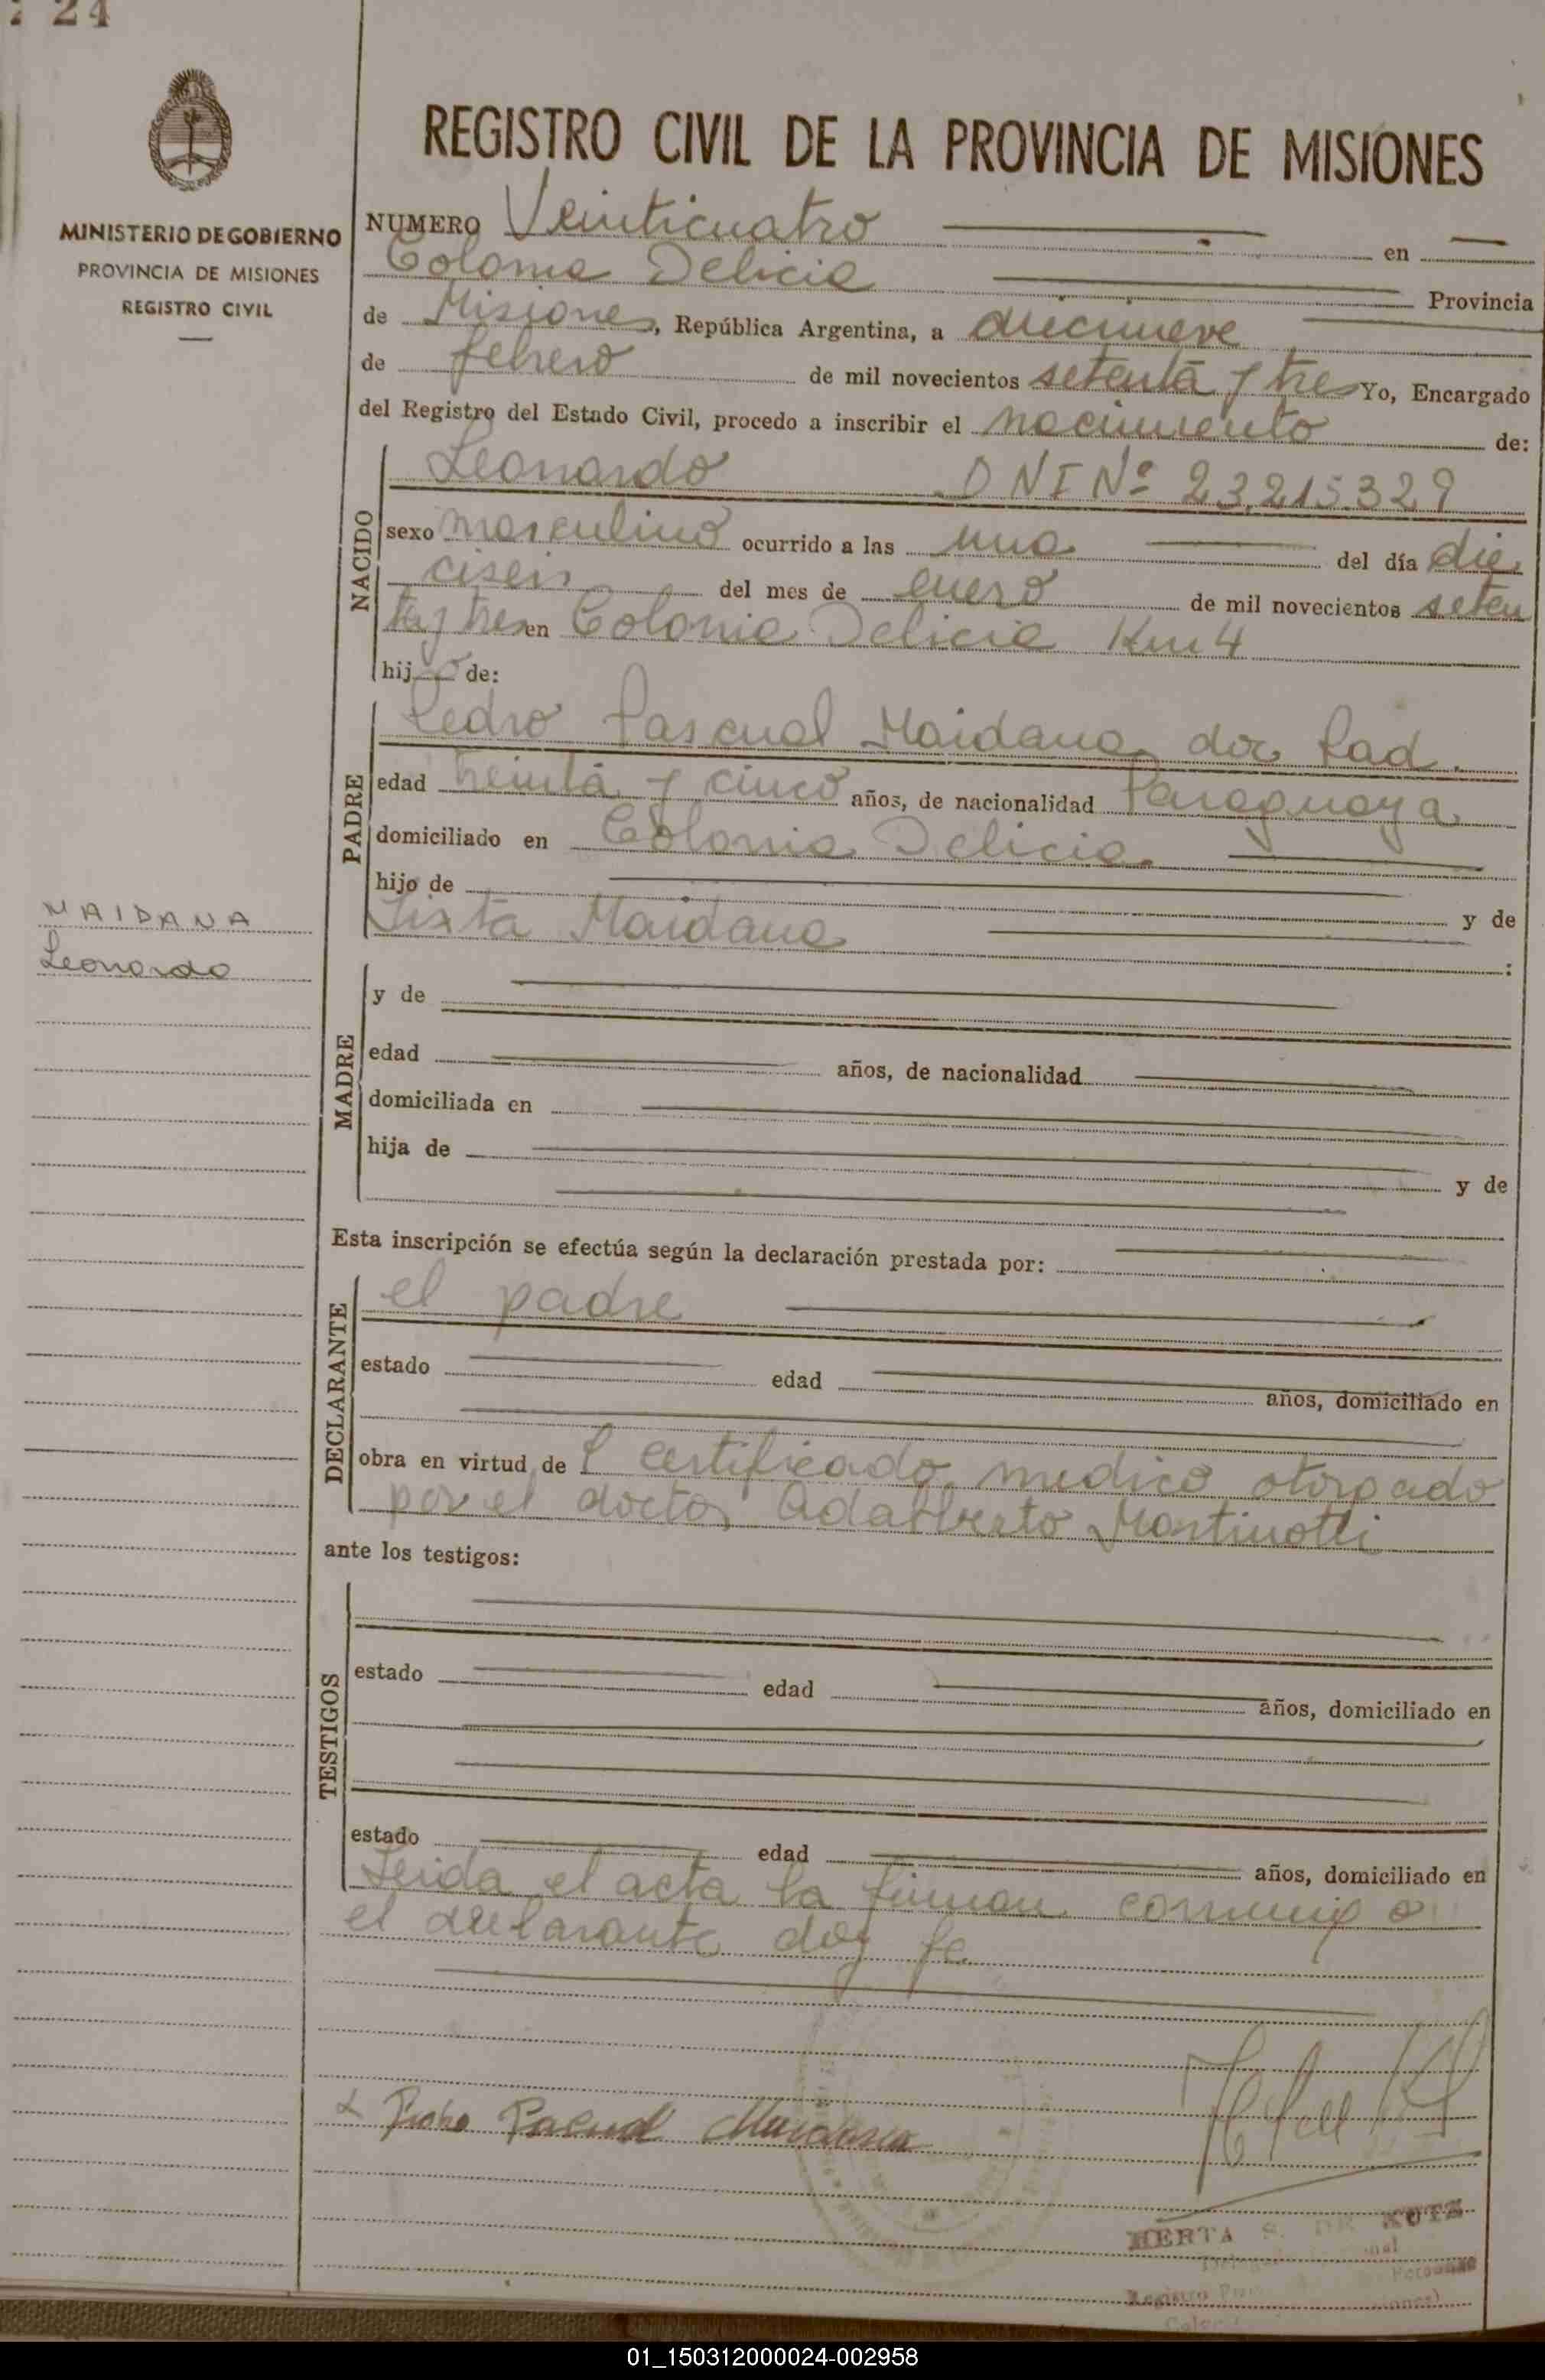 24
MINISTERIO DE GOBIERNO
PROVINCIA DE MISIONES
REGISTRO CIVIL
MAIDANA
Leonardo
REGISTRO CIVIL DE LA PROVINCIA DE MISIONES
NUMERO Veinticuatro en
Colonia Delicia Provincia
de Misiones, República Argentina, a diecinueve
de febrero de mil novecientos setenta y tres Yo, Encargado
del Registro del Estado Civil, procedo a inscribir el nacimiento de:
NACIDO
Leonardo DNI Nº 23.215.329
sexo masculino ocurrido a las una del día die
ciseis del mes de enero de mil novecientos seten
ta y tres en Colonia Delicia Km 4
hijo de:
PADRE
Pedro Pascual Maidana doc Rad.
edad treinta y cinco años, de nacionalidad Paraguaya
domiciliado en Colonia Delicia
hijo de y de
Sixta Maidana :
MADRE
y de
edad años, de nacionalidad
domiciliada en
hija de y de
Esta inscripción se efectúa según la declaración prestada por:
DECLARANTE
el padre
estado edad años, domiciliado en
obra en virtud de l certificado medico otorgado
por el doctor Adalberto Martinotti
ante los testigos:
TESTIGOS
estado edad años, domiciliado en
estado edad años, domiciliado en
Leida el acta la firman conmigo
el declarante doy fe
Pedro Pascual Maidana
HERTA S. DE KUTZ
Registro
01_150312000024-002958